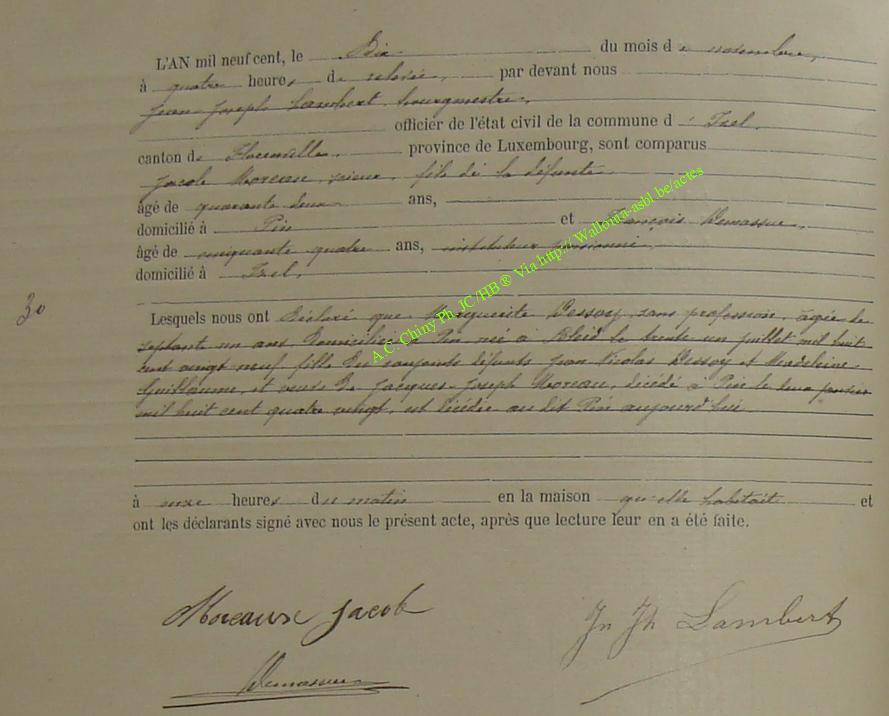 L'AN mil neuf cent, le Dix du mois de novembre,
à quatre heures de relevée, par devant nous
Jean Joseph Lambert, bourgmestre,
officier de l'état civil de la commune d'Izel,
canton de Florenville, province de Luxembourg, sont comparus
Jacob Moreau, fils de la défunte
âgé de quarante deux ans,
domicilié à Pin et François Demasure,
âgé de cinquante quatre ans, instituteur pensionné,
domicilié à Izel,
30
Lesquels nous ont Déclaré que Marguerite Dessoy, sans profession, âgée de
septante un ans Domiciliée à Pin né à Bleid le trente un juillet mil huit
cent vingt neuf fille des conjoints défunts Jean Nicolas Dessoy et Madeleine
Guillaume, et veuve de Jacques-Joseph Moreau, décédé à Pin le deux janvier
mil huit cent quatre vingt, est décédée au dit Pin aujourd'hui
à onze heures du matin en la maison qu'elle habitait et
ont les déclarants signé avec nous le présent acte, après que lecture leur en a été faite.
Moreaux Jacob
Jn Jh Lambert
A.C. Chiny Ph. JC/HB ® Via http:// Wallonia-asbl.be/actes